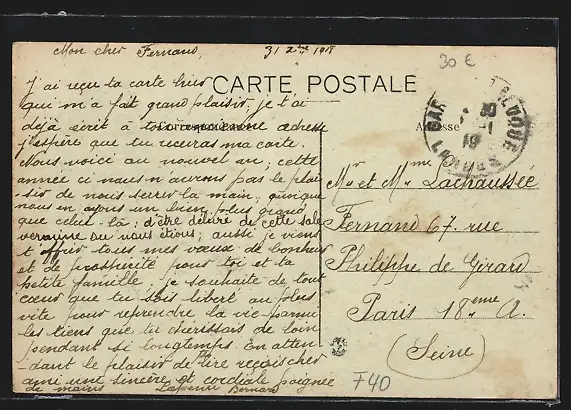 Mon cher Fernand, 31 Xbre 1918
30 €
J'ai reçu ta carte hier
CARTE POSTALE
qui m'a fait grand plaisir, je t'ai
déjà écrit à ton ancienne adresse
Correspondance
Adresse
j'espère que tu recevras ma carte.
Nous voici au nouvel an; cette
année ci nous n'aurons pas le plai
sir de nous serrer la main; quoique
nous en ayons un bien plus grand
que celui-là; d'être délivré de cette sale
vermine où nous étions; aussi je viens
t'offrir tous mes vœux de bonheur
et de prospérité pour toi et ta
petite famille, je souhaite de tout
cœur que tu sois libéré au plus
vite pour reprendre la vie parmi
les tiens que tu chérissais de loin
pendant si longtemps. En atten
-dant le plaisir de te lire reçois cher
ami une sincère et cordiale poignée
de mains Bernard
Mr et Mme Lachaussée
Fernand 67. rue
Philippe de Girard
Paris 18eme A.
(Seine)
F40